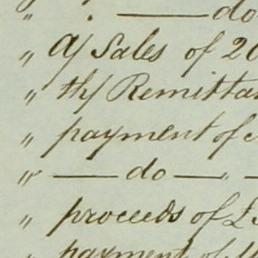 " " ——— do
" A/ Sales of 20
" thy Remittan
" payment of
" —— do ——
" proceeds of £
" payment of